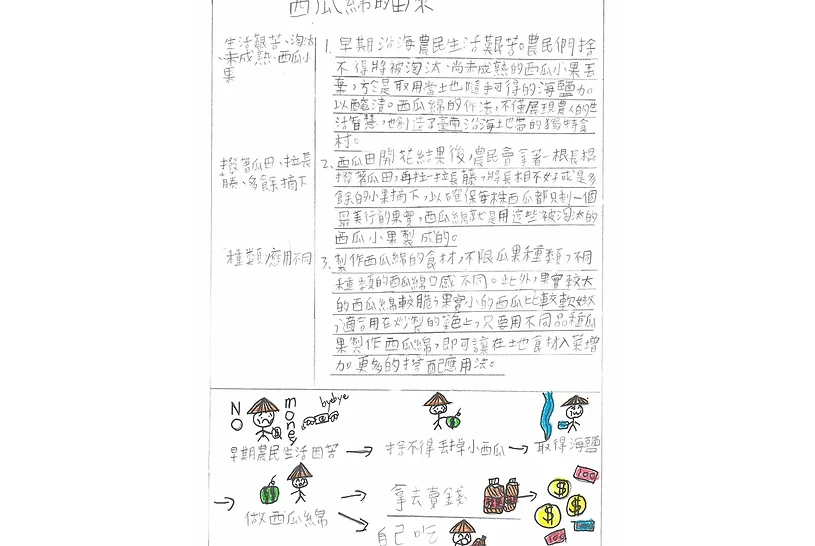 西瓜綿的由來
生活艱苦、淘汰
、未成熟、西瓜小
果
1. 早期沿海農民生活艱苦。農民們捨
不得將被淘汰、尚未成熟的西瓜小果丟
棄，於是取用當地隨手可得的海鹽加
以醃漬。西瓜綿的作法，不僅展現農人的生
活智慧，也創造了臺南沿海地帶的獨特食
材。
撥著瓜田、拉長
藤、多餘摘下
2. 西瓜田開花結果後，農民會拿著一根長棍
撥著瓜田，再拉一拉長藤，將長相不好或是多
餘的小果摘下，以確保每株西瓜都只剩一個
最美行的果實，西瓜綿就是用這些被淘汰的
西瓜小果製成的。
種類，應用不同
3. 製作西瓜綿的食材，不限瓜果種類，不同
種類的西瓜綿口感不同。此外，果實較大
的西瓜綿較脆，果實小的西瓜比較軟嫩
，適合用在炒製的菜色上，只要用不同品種瓜
果製作西瓜綿，即可讓在地食材入菜增
加更多的搭配應用法。
NO
money
byebye
早期農民生活困苦 → 捨不得丟掉小西瓜 → 取得海鹽
→ 做西瓜綿 → 拿去賣錢 →
自己吃
100
100
$
$